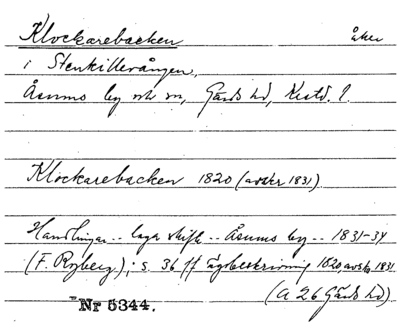 Klockarebacken åker
i Stenkillevången,
Åsums by och sn, Gärds hd, Kristd. l.
Klockarebacken 1820 (avskr 1831)
Handlingar .. laga skifte .. Åsums by .. 1831-34
(F. Ryberg); s. 36 ff ägobeskrivning 1820 avskr 1831
(A 26 Gärds hd)
Nr 5344.